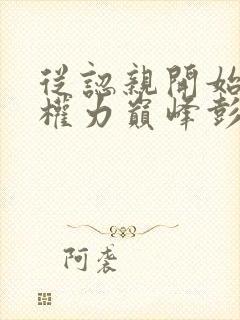 從認親開始
權力巔峰彭
阿裘